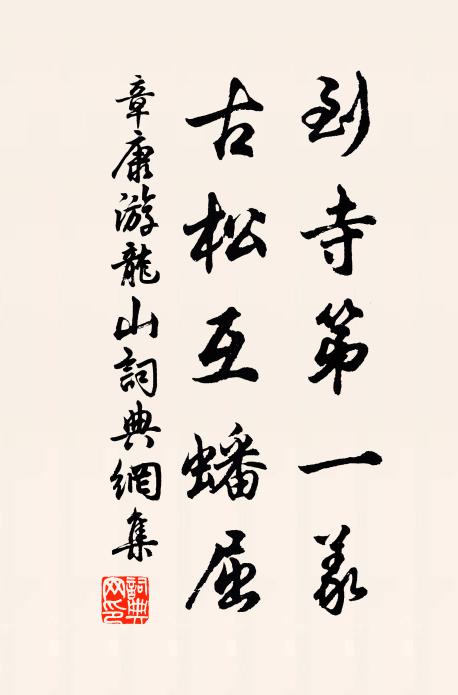 到寺第一義
古松互蟠屈
章康游龍山詞典網集
詞典网印